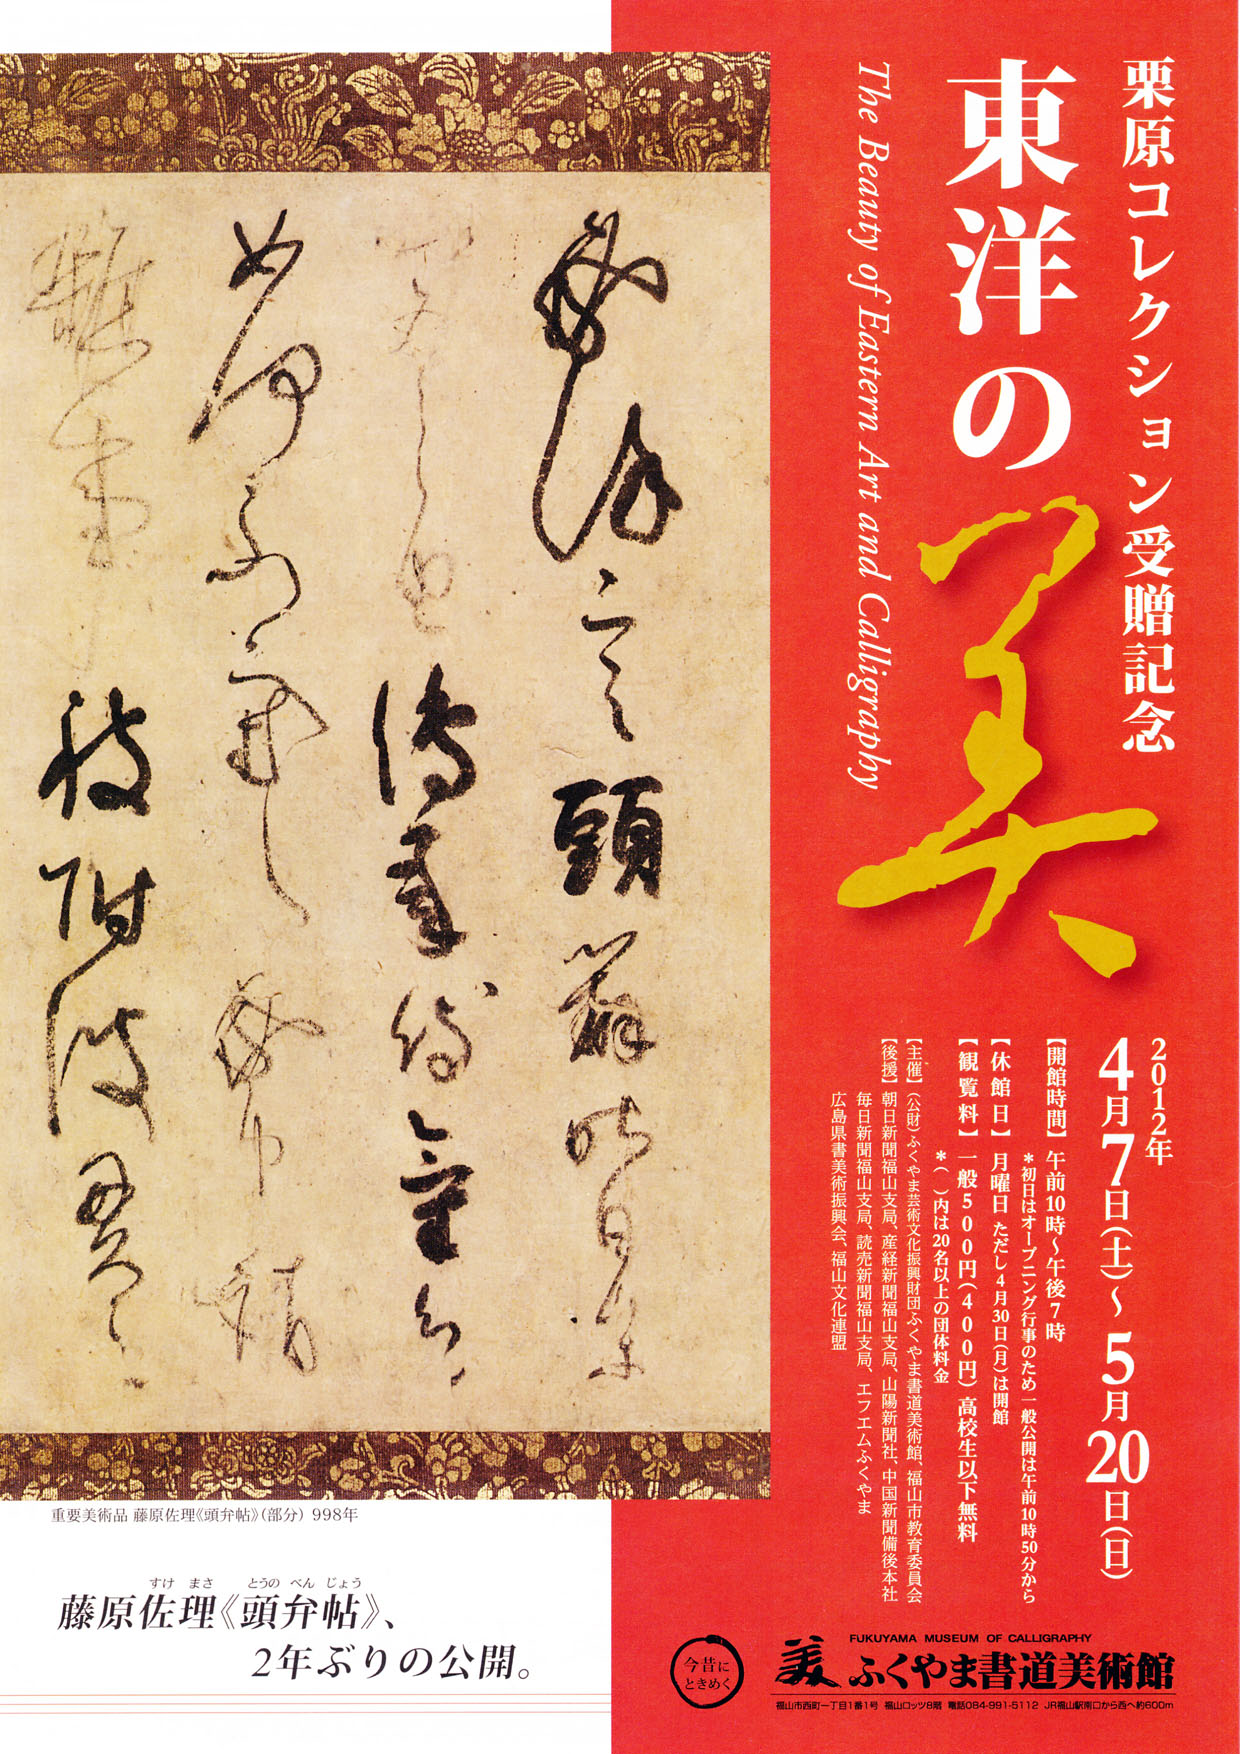 栗原コレクション受贈記念
東洋の美
The Beauty of Eastern Art and Calligraphy
2012年
4月7日(土)〜5月20日(日)
【開館時間】午前10時〜午後7時
*初日はオープニング行事のため一般公開は午前10時50分から
【休館日】月曜日 ただし4月30日(月)は開館
【観覧料】一般500円(400円)高校生以下無料
*( )内は20名以上の団体料金
【主催】(公財)ふくやま芸術文化振興財団ふくやま書道美術館、福山市教育委員会
【後援】朝日新聞福山支局、産経新聞福山支局、山陽新聞社、中国新聞備後本社
毎日新聞福山支局、読売新聞福山支局、エフエムふくやま
広島県書美術振興会、福山文化連盟
重要美術品 藤原佐理《頭弁帖》(部分) 998年
すけ まさ とうの べん じょう
藤原佐理《頭弁帖》、
2年ぶりの公開。
今昔に
ときめく
美
FUKUYAMA MUSEUM OF CALLIGRAPHY
ふくやま書道美術館
福山市西町一丁目1番1号 福山ロッツ8階 電話084-991-5112 JR福山駅南口から西へ約600m